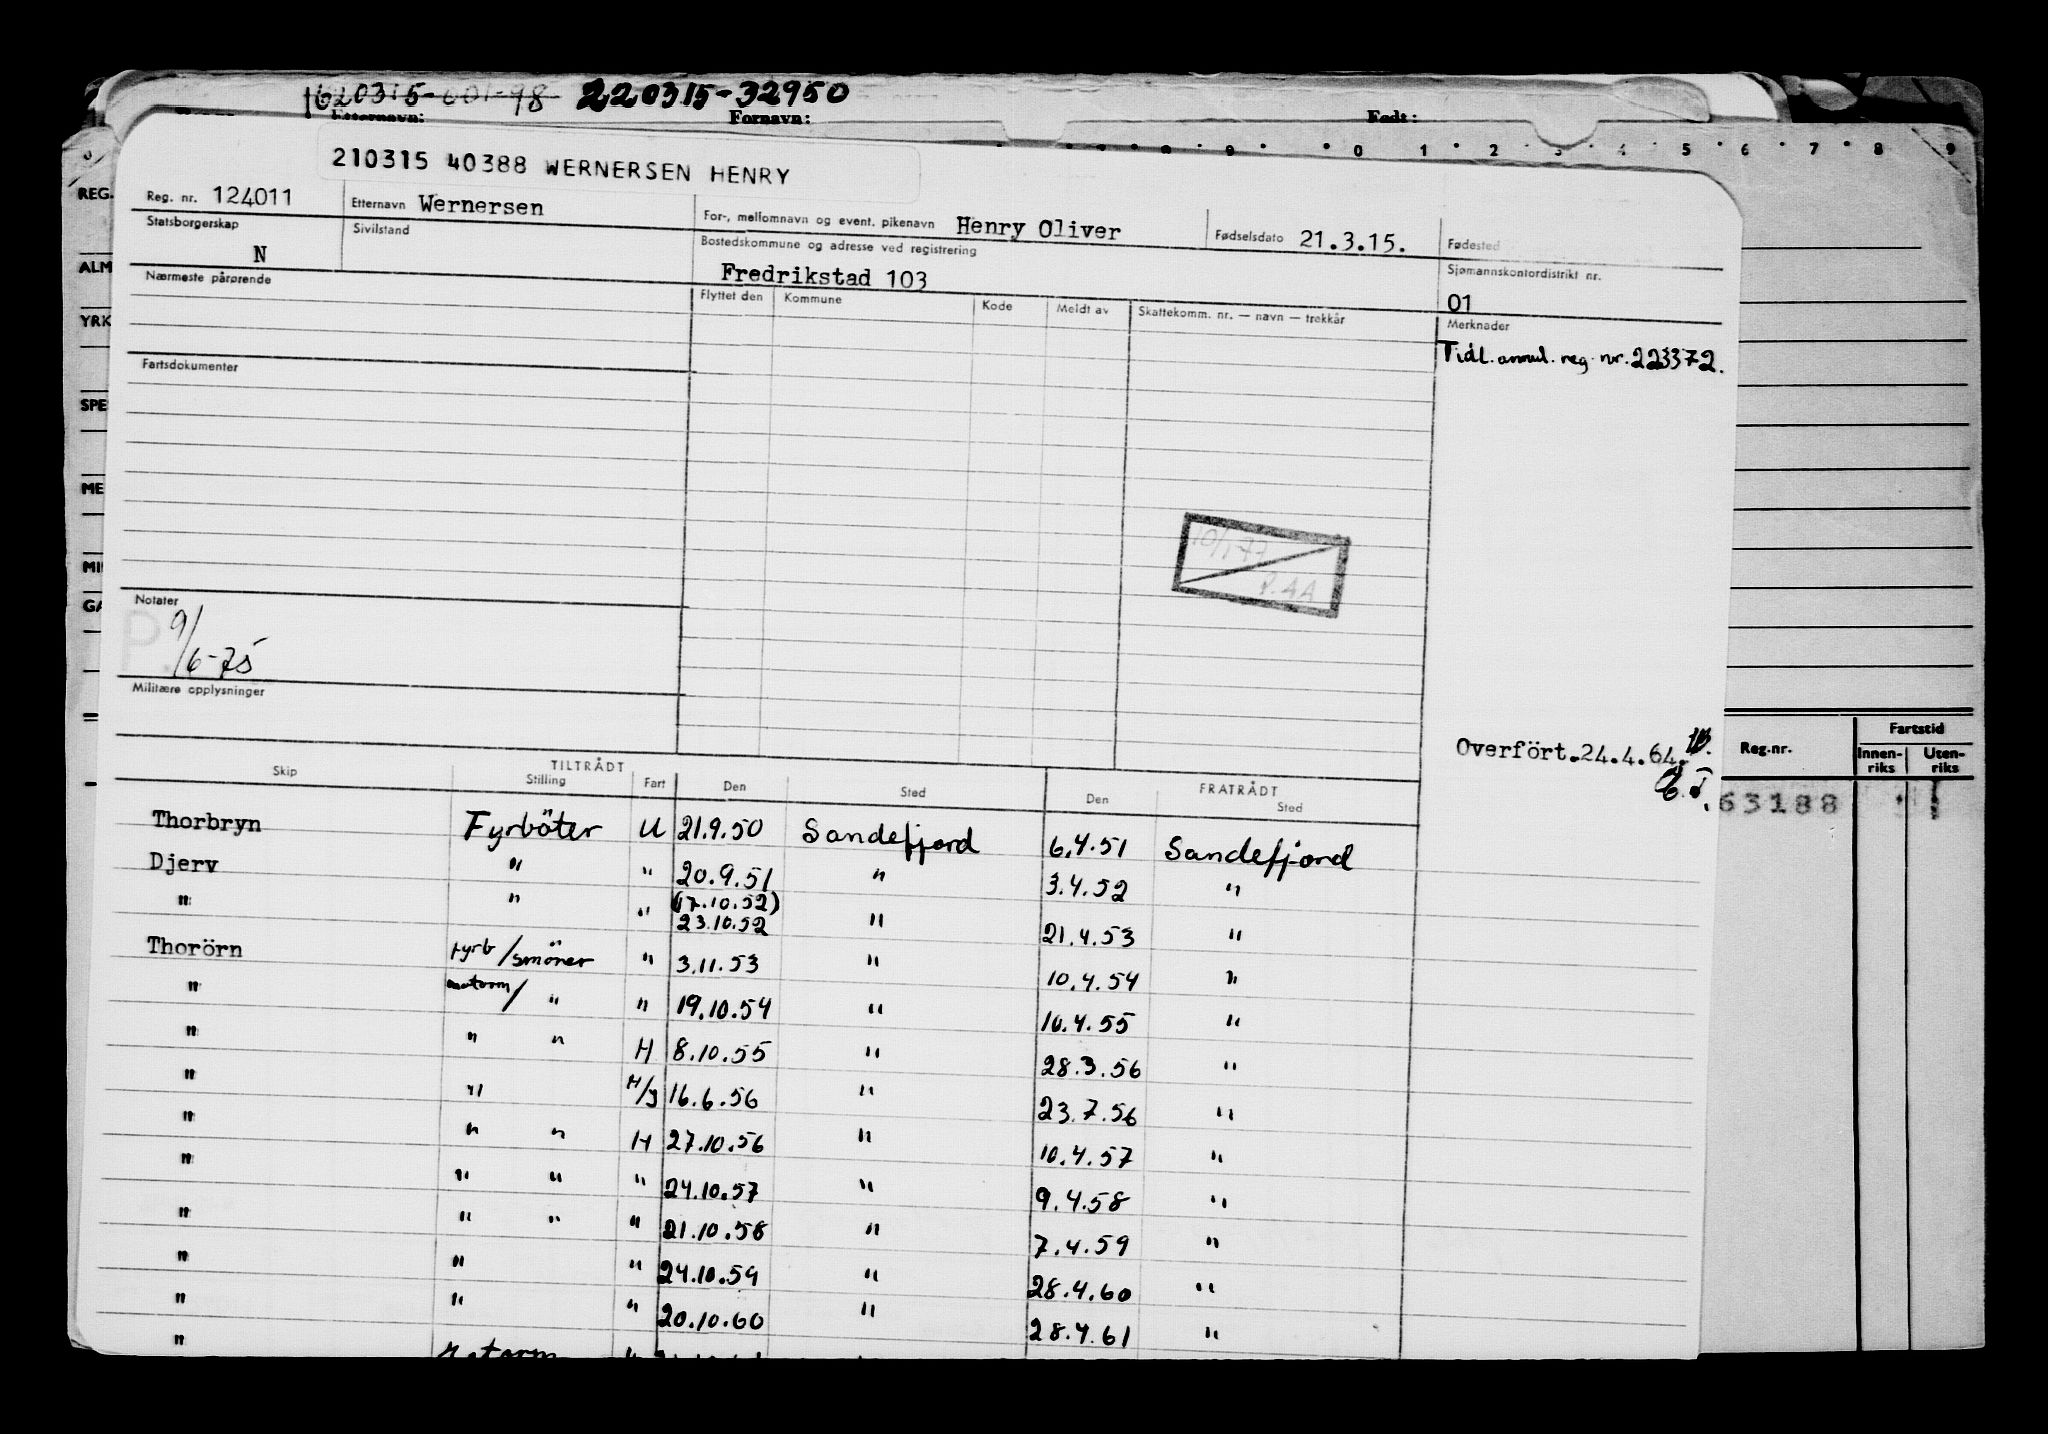 220315-32950
Etternavn: Fornavn: Født:
0 1 2 3 4 5 6 7 8 9
210315 40388 WERNERSEN HENRY
REG.
Reg. nr. 124011 Etternavn Wernersen For-, mellomnavn og event. pikenavn Henry Oliver Fødselsdato 21.3.15. Fødested
Statsborgerskap N Sivilstand Bostedskommune og adresse ved registrering Fredrikstad 103 Sjømannskontordistrikt nr. 01
ALM
Nærmeste pårørende Flyttet den Kommune Kode Meldt av Skattekomm. nr. — navn — trekkår Merknader
YRK
Tidl. annul. reg. nr. 223372.
Fartsdokumenter
SPE
ME
10/1-77
P.AA
MI
GA
Notater
9/6-75
Militære opplysninger
Overfört.24.4.64.
Reg.nr. Fartstid
Innen-riks Uten-riks
63188
TILTRÅDT FRATRÅDT
Skip Stilling Fart Den Sted Den Sted
Thorbryn Fyrböter U 21.9.50 Sandefjord 6.4.51 Sandefjord
Djerv " " 20.9.51 " 3.4.52 "
" " " (17.10.52) 23.10.52 " 21.4.53 "
Thorörn fyrb/smörer " 3.11.53 " 10.4.54 "
" motorm/ " " 19.10.54 " 10.4.55 "
" " " H 8.10.55 " 28.3.56 "
" " H/J 16.6.56 " 23.7.56 "
" " " H 27.10.56 " 10.4.57 "
" " " " 24.10.57 " 9.4.58 "
" " " " 21.10.58 " 7.4.59 "
" " " 24.10.59 " 28.4.60 "
" " " 20.10.60 " 28.4.61 "
" Motorm "